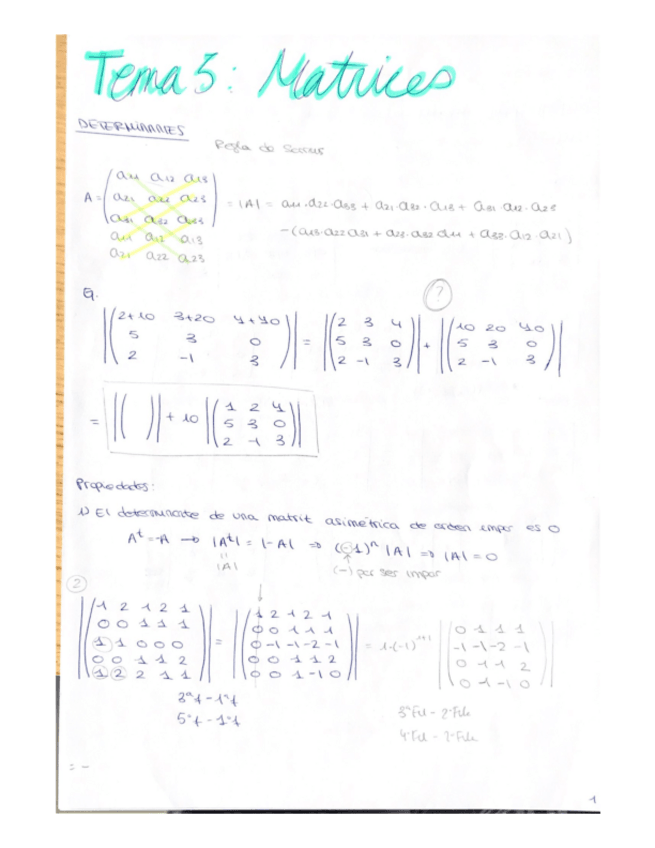 Tema 5: Matrices
DETERMINANTES
Regla de Sarrus
A = ( a11 a12 a13
a21 a22 a23
a31 a32 a33 ) = |A| = a11·a22·a33 + a21·a32·a13 + a31·a12·a23
a11 a12 a13
a21 a22 a23
-(a13·a22·a31 + a23·a32·a11 + a33·a12·a21)
Ej.
?
|(2+10 3+20 4+40
5 3 0
2 -1 3)| = |(2 3 4
5 3 0
2 -1 3)| + |(10 20 40
5 3 0
2 -1 3)|
= |( )| + 10 |(1 2 4
5 3 0
2 -1 3)|
Propiedades:
1) El determinante de una matriz asimétrica de orden impar es 0
A^t = -A → |A^t| = |-A| ⇒ (-1)^n |A| ⇒ |A| = 0
||
|A|
(-) por ser impar
2
|(1 2 1 2 1
0 0 1 1 1
1 1 0 0 0
0 0 1 1 2
1 2 2 1 1)| = |(1 2 1 2 1
0 0 1 1 1
0 -1 -1 -2 -1
0 0 1 1 2
0 0 1 -1 0)| = 1·(-1)^1+1 |0 1 1 1
-1 -1 -2 -1
0 1 1 2
0 1 -1 0|
3ªf - 1ªf
5ªf - 1ªf
3ª Fil - 2ª Fila
4ª Fil - 2ª Fila
= -
1